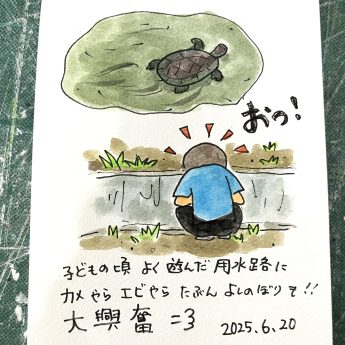 おっ!
子どもの頃 よく 遊んだ 用水路に
カメやら エビやら たぶん よしのぼりも!!
大興奮 =3
2025.6.20